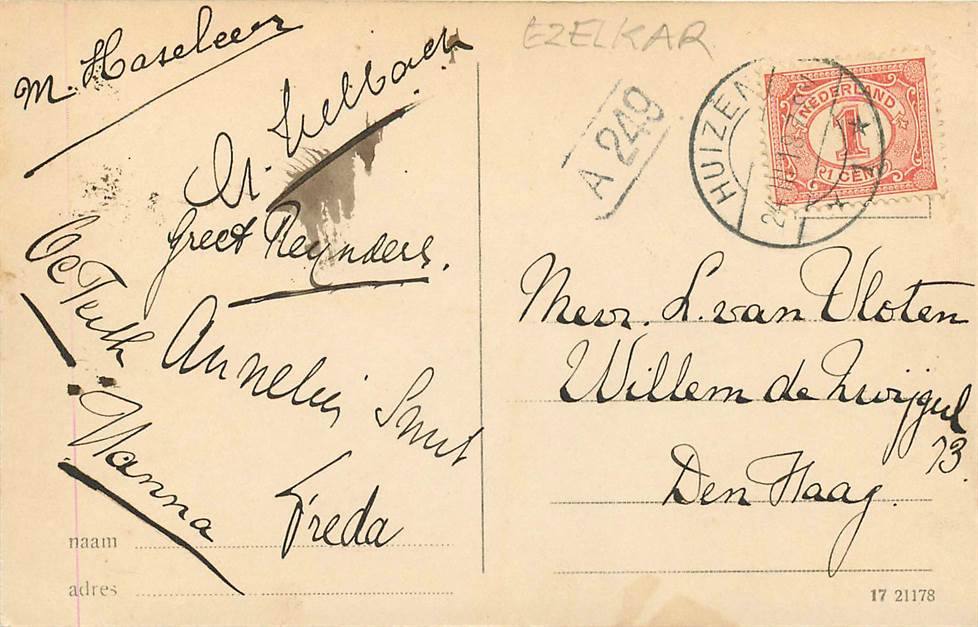 EZELKAR
M. Haseleer
Greet Reynders.
Annelies Smit
Nanna
Freda
naam
adres
A 249
HUIZEN
NEDERLAND
1
CENT
Mevr. L. van Vloten
Willem de Zwijgerl
73.
Den Haag.
17 21178